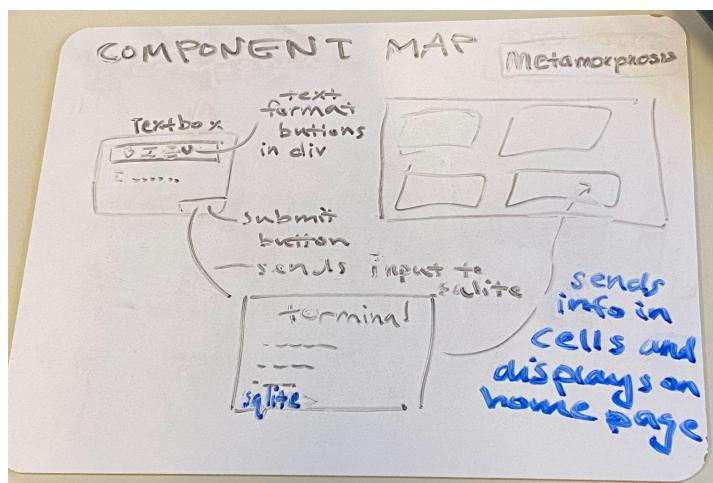 COMPONENT MAP
Metamorphosis
Textbox
text
format
buttons
in div
B I
submit
button
sends input to
sqlite
terminal
sqlite
sends
info in
cells and
displays on
home page